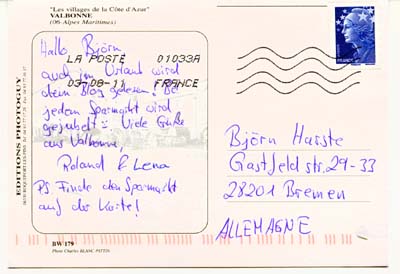 "Les villages de la Côte d'Azur"
VALBONNE
(06-Alpes Maritimes)
Hallo Björn
LA POSTE 01033A
auch im Urlaub wird
dein Blog gelesen. Bei
03-08-11 FRANCE
jedem Sparmarkt wird
gejubelt! Viele Grüße
aus Valbonne,
Roland & Lena
PS. Finde den Sparmarkt
auf der Karte!
FRANCE
Björn Harste
Gastfeldstr. 29-33
28201 Bremen
ALLEMAGNE
EDITIONS PHOTOGUY
BW 179
Photo Charles BLANC-PATTIN